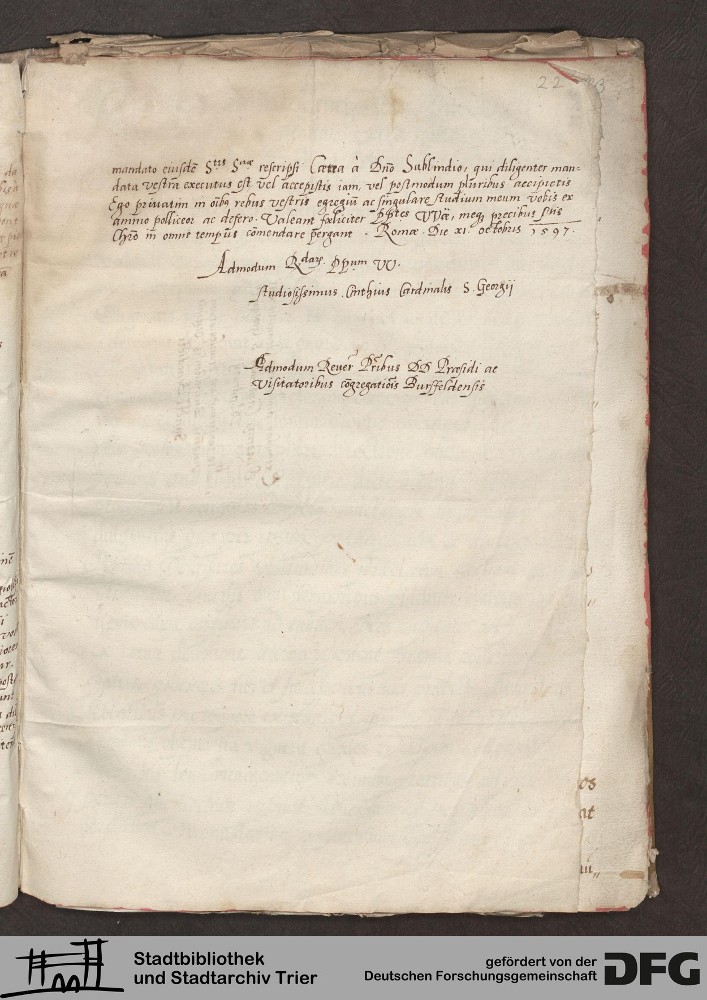 22
mandato eiusdē S.tis Suae rescripsi Caetera à Dn̄o Sublindio, qui diligenter man=
data vestra executus est vel accepistis iam, vel postmodum pluribus accipietis
Ego privatim in oīb3 rebus vestris egregiū ac singulare studium meum vobis ex
animo polliceor ac defero. Valeant foeliciter Ptes VVae, meq3 precibus suis
Chr̄o in omne tempus cōmendare pergant. Romae. Die XI. octobris 1597.
Admodum R.dar. PP.um VV.
studiosissimus Cinthius Cardinalis S. Georgii
Admodum Rever. Pr̄ibus DD Praesidi ac
Visitatoribus cōgregatiōis Bursfeldensis
os
at
Stadtbibliothek
und Stadtarchiv Trier
gefördert von der
Deutschen Forschungsgemeinschaft
DFG